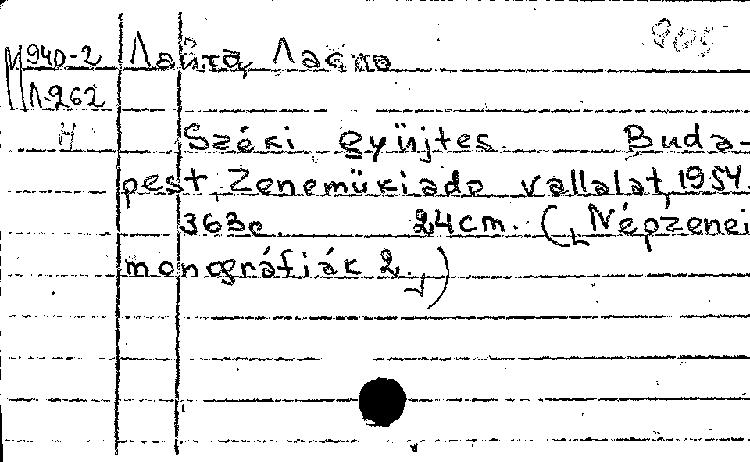 М940-2 Лайта, Ласло
Л-262
Н Széki gyüjtes. Buda-
pest, Zenemükiado vallalat, 1954.
363c. 24cm. (Népzenei
monográfiák 2.)